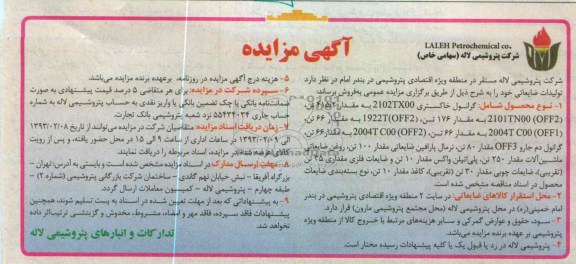 LALEH Petrochemical co.
شرکت پتروشیمی لاله (سهامی خاص)
آگهی مزایده
شرکت پتروشیمی لاله مستقر در منطقه ویژه اقتصادی پتروشیمی در بندر امام در نظر دارد
تولیدات ضایعاتی خود را به شرح ذیل از طریق برگزاری مزایده عمومی به‌فروش برساند.
۱- نوع محصول شامل: گرانول خاکستری 2102TX00 به مقدار تن،
2101TN00 (OFF2) به مقدار ۱۷۶ تن، 1922T (OFF2) به مقدار ۶۶ تن،
2004T C00 (OFF1) به مقدار ۶۶ تن، 2004T C00 (OFF2) به مقدار ۶۶ تن،
گرانول دم جارو OFF3 مقدار ۸۰ تن، نرمال پارافین ضایعاتی مقدار ۱۰۰ تن، روغن ضایعاتی
ماشین‌آلات مقدار ۲۵۰ تن، پلی‌اتیلن واکس مقدار ۱۰ تن و ضایعات فلزی مقداری ۴۵ تن
(تقریبی)، ضایعات چوبی مقدار ۳۰ تن (تقریبی)، کاغذ مقدار ۱۰ تن، نوع بسته‌بندی ضایعات
محصول در اسناد مناقصه مشخص شده است.
۲- محل استقرار کالاهای ضایعاتی: در سایت ۲ منطقه ویژه اقتصادی پتروشیمی در بندر
امام خمینی(ره) در محل پتروشیمی لاله (محل مجتمع پتروشیمی مارون) قرار دارد.
۳- سود، حقوق و عوارض گمرکی و سایر هزینه‌های مرتبط با خروج کالا از منطقه ویژه
پتروشیمی بر عهده برنده مزایده می‌باشد.
۴- پتروشیمی لاله در رد یا قبول یک یا کلیه پیشنهادات رسیده مختار است.
۵- هزینه درج آگهی مزایده در روزنامه، برعهده برنده مزایده می‌باشد.
۶- سپرده شرکت در مزایده: برای هر متقاضی ۵ درصد قیمت پیشنهادی به صورت
ضمانت‌نامه بانکی یا چک تضمین بانکی یا واریز نقدی به حساب پتروشیمی لاله به شماره
حساب جاری نزد شعبه پتروشیمی بانک تجارت.
۷- زمان دریافت اسناد مزایده: متقاضیان شرکت در مزایده می‌توانند از تاریخ ۱۳۹۳/۰۲/۰۸
الی ۱۳۹۳/۰۲/۰۹ در ساعات اداری از ساعت ۹ الی ۱۵ در محل حضور یافته، و پس از رویت
کالای عرضه شده در مزایده، اسناد مربوطه را دریافت نمایند.
۸- مهلت ارسال مدارک در اسناد مزایده مشخص شده است و بایستی به آدرس: تهران -
بزرگراه آفریقا - نبش خیابان نهم گاندی - ساختمان شرکت بازرگانی پتروشیمی (شماره ۲) -
طبقه چهارم - پتروشیمی لاله - کمیسیون معاملات ارسال گردد.
۹- به پیشنهاداتی که بعد از مهلت تعیین شده در اسناد به پست تسلیم شوند، همچنین
پیشنهادات فاقد سپرده، فاقد مهر و امضاء، مشروط، مخدوش و گزینشی ترتیب‌اثر داده
نخواهد شد.
تدارکات و انبارهای پتروشیمی لاله